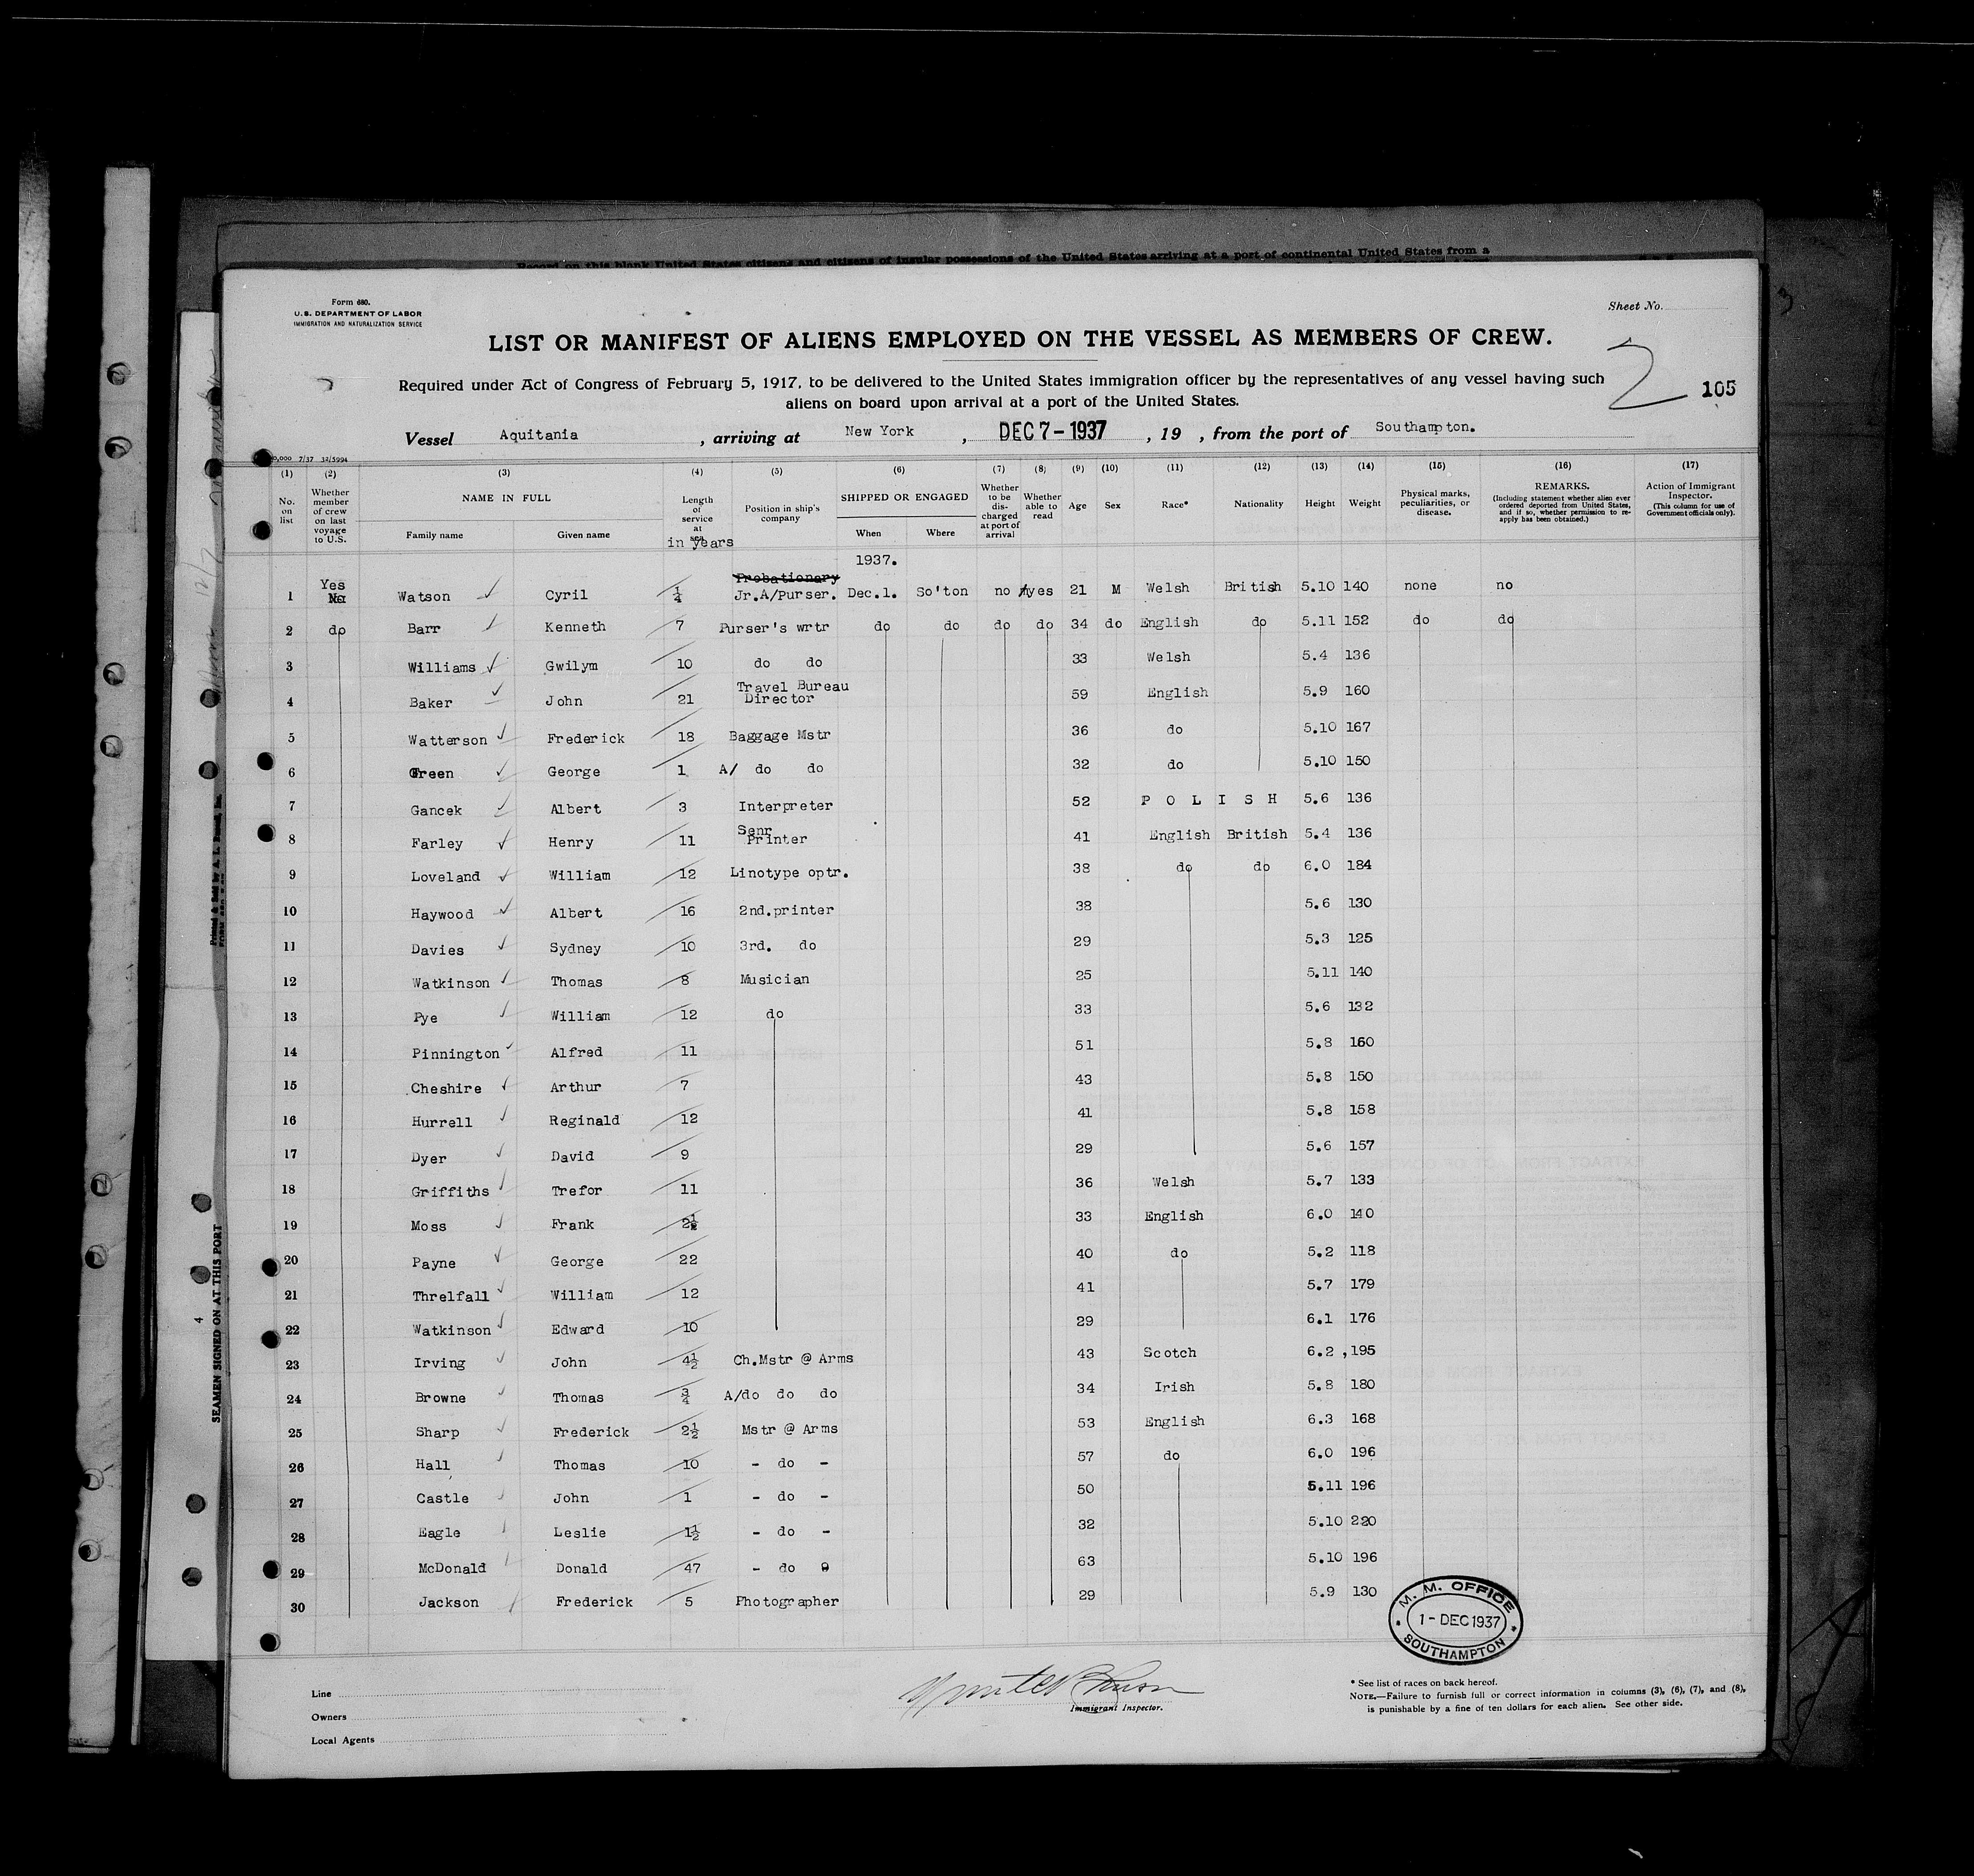 Record on this blank United States citizens and citizens of insular possessions of the United States arriving at a port of continental United States from a
Form 680.
U.S. DEPARTMENT OF LABOR
IMMIGRATION AND NATURALIZATION SERVICE
Sheet No.
LIST OR MANIFEST OF ALIENS EMPLOYED ON THE VESSEL AS MEMBERS OF CREW.
2
105
Required under Act of Congress of February 5, 1917, to be delivered to the United States immigration officer by the representatives of any vessel having such
aliens on board upon arrival at a port of the United States.
Vessel Aquitania , arriving at New York , DEC 7-1937 , 19 , from the port of Southampton.
(1) (2) (3) (4) (5) (6) (7) (8) (9) (10) (11) (12) (13) (14) (15) (16) (17)
No. on list
Whether member of crew on last voyage to U.S.
NAME IN FULL
Family name Given name
Length of service at sea
in years
Position in ship's company
SHIPPED OR ENGAGED
When Where
Whether to be discharged at port of arrival
Whether able to read
Age Sex Race* Nationality Height Weight
Physical marks, peculiarities, or disease.
REMARKS.
(Including statement whether alien ever ordered deported from United States, and if so, whether permission to reapply has been obtained.)
Action of Immigrant Inspector.
(This column for use of Government officials only).
1937.
Yes Probationary
1 No Watson Cyril ¼ Jr.A/Purser. Dec.1. So'ton no yes 21 M Welsh British 5.10 140 none no
2 do Barr Kenneth 7 Purser's wrtr do do do do 34 do English do 5.11 152 do do
3 Williams Gwilym 10 do do 33 Welsh 5.4 136
4 Baker John 21 Travel Bureau Director 59 English 5.9 160
5 Watterson Frederick 18 Baggage Mstr 36 do 5.10 167
6 Green George 1 A/ do do 32 do 5.10 150
7 Gancek Albert 3 Interpreter 52 P O L I S H 5.6 136
8 Farley Henry 11 Senr Printer 41 English British 5.4 136
9 Loveland William 12 Linotype optr. 38 do do 6.0 184
10 Haywood Albert 16 2nd.printer 38 5.6 130
11 Davies Sydney 10 3rd. do 29 5.3 125
12 Watkinson Thomas 8 Musician 25 5.11 140
13 Pye William 12 do 33 5.6 132
14 Pinnington Alfred 11 51 5.8 160
15 Cheshire Arthur 7 43 5.8 150
16 Hurrell Reginald 12 41 5.8 158
17 Dyer David 9 29 5.6 157
18 Griffiths Trefor 11 36 Welsh 5.7 133
19 Moss Frank 2½ 33 English 6.0 140
20 Payne George 22 40 do 5.2 118
21 Threlfall William 12 41 5.7 179
22 Watkinson Edward 10 29 6.1 176
23 Irving John 4½ Ch.Mstr @ Arms 43 Scotch 6.2 ,195
24 Browne Thomas ¾ A/do do do 34 Irish 5.8 180
25 Sharp Frederick 2½ Mstr @ Arms 53 English 6.3 168
26 Hall Thomas 10 - do - 57 do 6.0 196
27 Castle John 1 - do - 50 5.11 196
28 Eagle Leslie 1½ - do - 32 5.10 220
29 McDonald Donald 47 - do 63 5.10 196
30 Jackson Frederick 5 Photographer 29 5.9 130
M. M. OFFICE
1 - DEC 1937
SOUTHAMPTON
Line
Owners
Local Agents
Immigrant Inspector.
* See list of races on back hereof.
NOTE.—Failure to furnish full or correct information in columns (3), (6), (7), and (8),
is punishable by a fine of ten dollars for each alien. See other side.
SEAMEN SIGNED ON AT THIS PORT
4
3